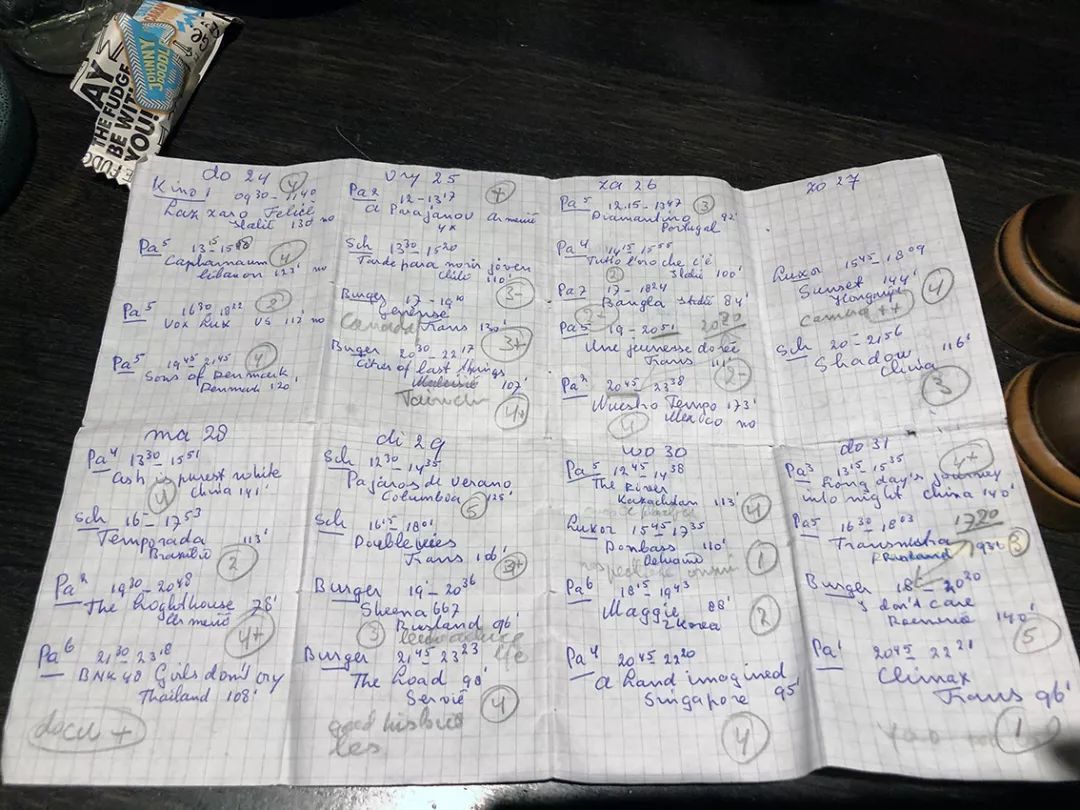 JOHNNY
DOODLE
MAY
THE FUDGE
BE WITH
YOU!
do 24
Kino 1 0930 - 1140 4
Lazzaro Felice
Italië 130 no
Pa5 1315 - 1518
Capharnaum 4
Libanon 123' no
Pa5 1630 1822 2
Vox Lux US 112' no
Pa5 1945 - 2145 4
Sons of Denmark
Denmark 120'
vry 25
Pa2 12 - 1317 4
a Parajanov Armenië
Sch 1330 - 1520
Tarde para morir joven
Chili 110'
3-
Burger 17 - 1910
Genèse
Canada Frans 130'
3+
Burger 2030 - 2217
Cities of last things
107
4+
za 26
Pa5 12.15 - 1347 3
Diamantino 92'
Portugal
Pa4 1415 1555
Tutto l'oro che c'è
2 Italië 100'
Pa7 17 - 1824
Bangla Italië 84'
2+
Pa5 19 - 2051 2020
Une jeunesse dorée
Frans 111'
2-
Pa2 2045 - 2338
Nuestro Tempo 173'
4 Mexico no
zo 27
Luxor 1545 - 1809
Sunset 144'
Hongarije 4
camera ++
Sch 20 - 2156
Shadow 116'
China
3
ma 28
Pa4 1330 - 1551
Cash is purest white
4 China 141'
Sch 16 - 1753
Temporada 113'
Brazilië 2
Pa2 1930 - 2048
The Lighthouse 78'
Armenië
4+
Pa6 2130 2318
BNK48 Girls don't cry
Thailand 108'
docu +
di 29
Sch 1230 - 1435
Pajaros de verano
Columbia 125'
5
Sch 1615 - 1801
Doubles vies
Frans 106'
3+
Burger 19 - 2036
Sheena 667
3 Rusland 96'
Burger 2145 - 2323
The Load 98'
Servië 4
good
les
wo 30
Pa5 1245 - 1438
The River
Kazachstan 113'
4
Luxor 1545 - 1735
Donbass 110'
1
Pa6 1815 - 1943
Maggie 88'
Z Korea 2
Pa4 2045 2220
a Land imagined
Singapore 95'
4
do 31
Pa3 1315 - 1535 4+
Long day's journey
into night China 140'
Pa5 1630 - 1803 1720
Transnistra
Rusland 93' 3
Burger 18 - 2020
I don't care
Roemenië 140'
5
Pa1 2045 2221
Climax
Frans 96'
1